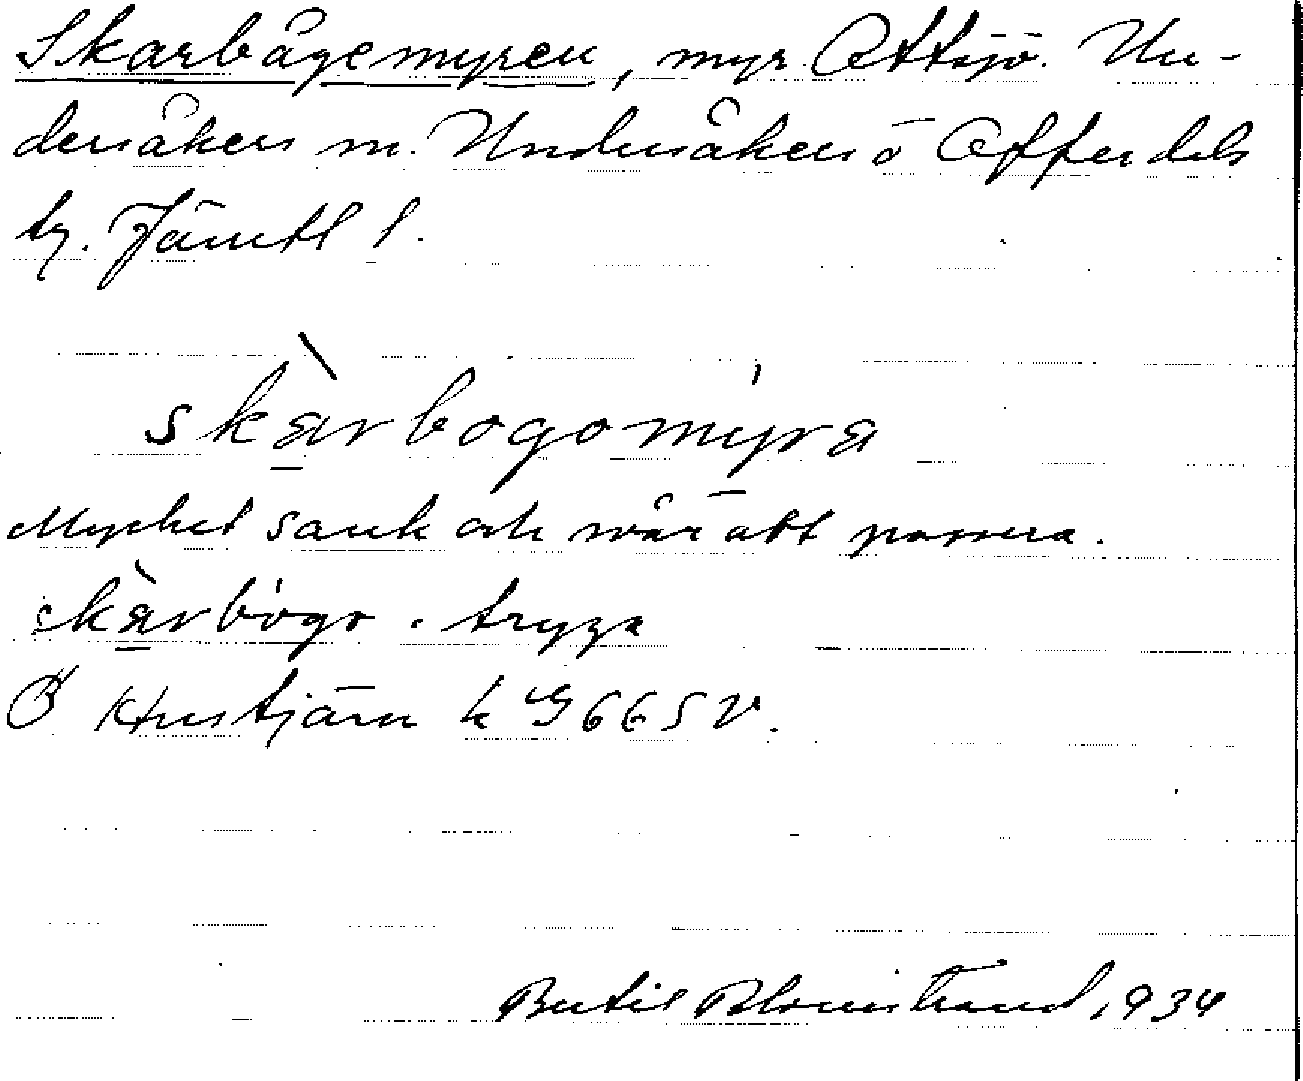 Skarbågemyren, myr Ottsjö. Un-
dersåkers sn. Undersåkers ö Offerdals
tg. Jämtl l.
skàrbogomýra
Mycket sank och svår att passera.
skàrbógo. tryga
Ö Hustjärn k G 66 S V.
Bertil Blomstrand 1934